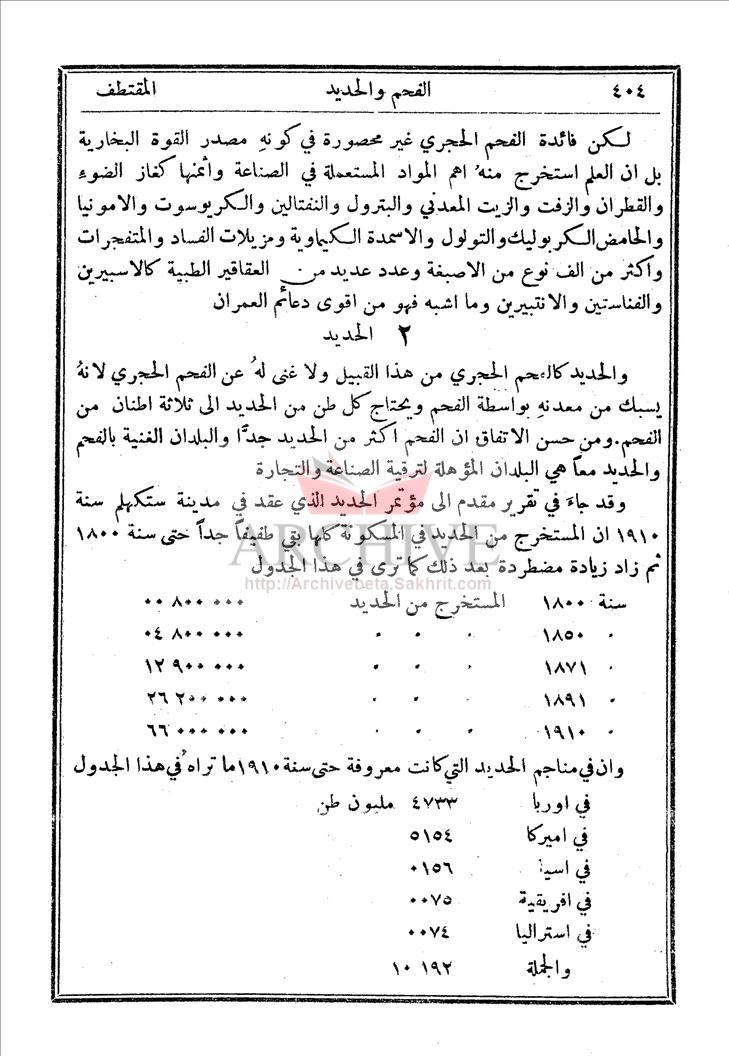 ٤٠٤ الفحم والحديد المقتطف
لكن فائدة الفحم الحجري غير محصورة في كونهِ مصدر القوة البخارية
بل ان العلم استخرج منهُ اهم المواد المستعملة في الصناعة وأثمنها كغاز الضوء
والقطران والزفت والزيت المعدني والبترول والنفتالين والكريوسوت والامونيا
والحامض الكربوليك والتولول والاسمدة الكيماوية ومزيلات الفساد والمتفجرات
واكثر من الف نوع من الاصبغة وعدد عديد من العقاقير الطبية كالاسبيرين
والفناستين والانتبيرين وما اشبه فهو من اقوى دعائم العمران
٢ الحديد
والحديد كالفحم الحجري من هذا القبيل ولا غنى لهُ عن الفحم الحجري لانهُ
يسبك من معدنهِ بواسطة الفحم ويحتاج كل طن من الحديد الى ثلاثة اطنان من
الفحم. ومن حسن الاتفاق ان الفحم اكثر من الحديد جدًّا والبلدان الغنية بالفحم
والحديد معاً هي البلدان المؤهلة لترقية الصناعة والتجارة
وقد جاءَ في تقرير مقدم الى مؤتمر الحديد الذي عقد في مدينة ستكهلم سنة
١٩١٠ ان المستخرج من الحديد في المسكونة كلها بقي طفيفاً جداً حتى سنة ١٨٠٠
ثم زاد زيادة مضطردة بعد ذلك كما ترى في هذا الجدول
سنة ١٨٠٠ المستخرج من الحديد ٠٠٠ ٨٠٠ ٠٠
" ١٨٥٠ " " " ٠٠٠ ٨٠٠ ٠٤
" ١٨٧١ " " " ٠٠٠ ٩٠٠ ١٢
" ١٨٩١ " " " ٠٠٠ ٢٠٠ ٢٦
" ١٩١٠ " " " ٠٠٠ ٠٠٠ ٦٦
وان في مناجم الحديد التي كانت معروفة حتى سنة ١٩١٠ ما تراهُ في هذا الجدول
في اوربا ٤٧٣٣ مليون طن
في اميركا ٥١٥٤
في اسيا ٠١٥٦
في افريقية ٠٠٧٥
في استراليا ٠٠٧٤
والجملة ١٩٢ ١٠
ARCHIVE
http://Archivebeta.Sakhrit.com